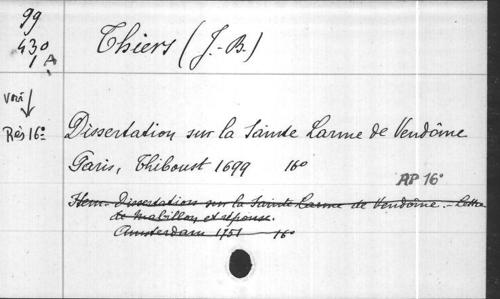 99
430
1 A
Thiers (J.-B.)
voir
Rés 16º
Dissertation sur la Sainte Larme de Vendôme
Paris, Thiboust 1699 16º
AP 16º
Item. Dissertation sur la Sainte Larme de Vendôme. - Lettre
de Mabillon et réponse.
Amsterdam 1751 16º